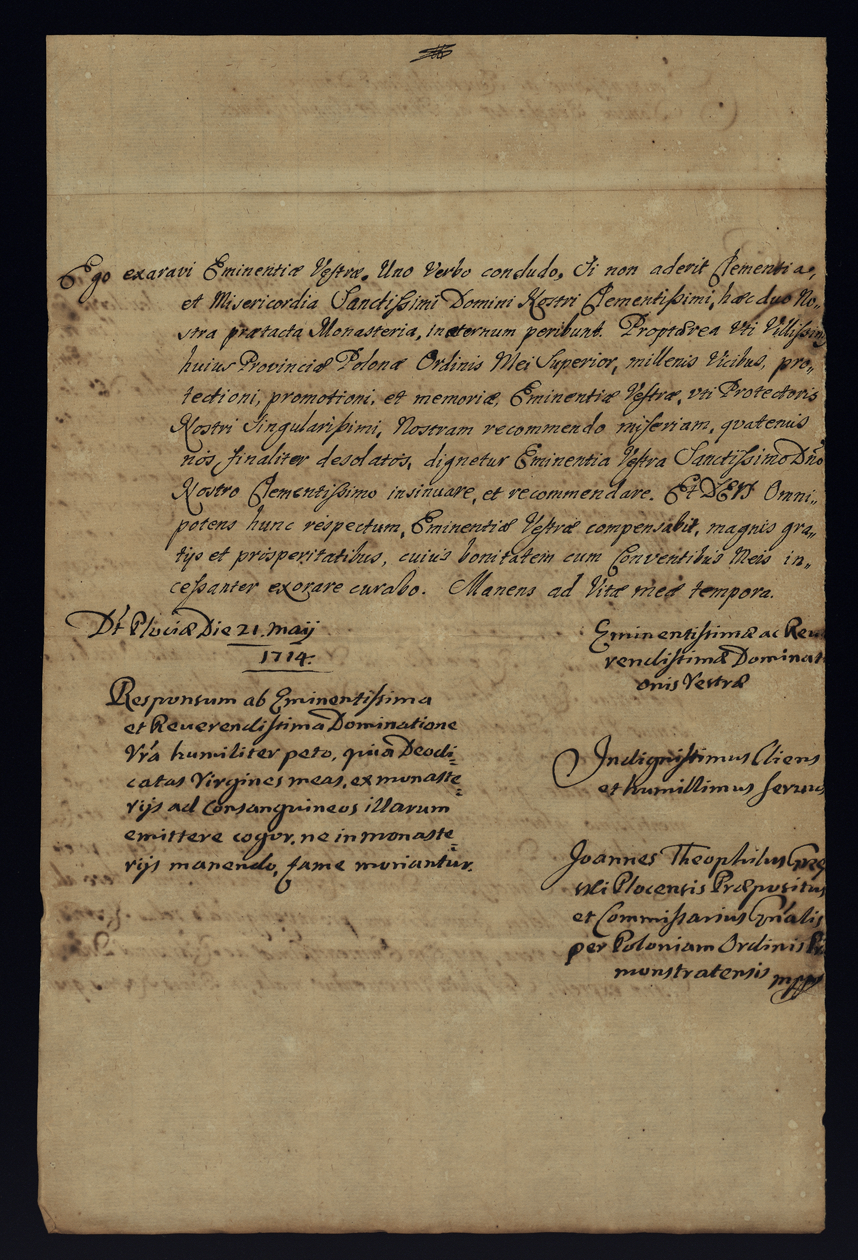 Ego exaravi Eminentiæ Vestræ. Uno Verbo concludo, Si non aderit Clementia,
et Misericordia Sanctissimi Domini Nostri Clementissimi, hæc duo No„
stra prætacta Monasteria, inæternum peribunt. Proptærea Vti Villissim
huius Provinciæ Polonæ Ordinis Mei Superior, millenis Vicibus, pro„
tectioni, promotioni, et memoriæ, Eminentiæ Vestræ, vti Protectoris
Nostri Singularissimi, Nostram recommendo miseriam, qvatenus
nos finaliter desolatos, dignetur Eminentia Vestra Sanctissimo Dño
Nostro Clementissimo insinuare, et recommendare. Et DEUS Omni„
potens hunc respectum, Eminentiæ Vestræ compensabit, magnis gra„
tijs et prosperitatibus, cuius bonitatem cum Conventibus Meis in„
cessanter exorare curabo. Manens ad Vitæ meæ tempora.
Dt Plociæ Die 21. Maij
1714.
Eminentissimæ ac Reue
rendissimæ Dominat
onis Vestræ
Responsum ab Eminentissima
et Reuerendissima Dominatione
Vra humiliter peto, quia Deodi=
catas Virgines meas, ex monaste=
rijs ad Consanguineos illarum
emittere cogor, ne in monaste=
rijs manendo, fame moriantur.
Indignissimus Cliens
et humillimus seruus
Joannes Theophilus
Plocensis Præpositus
et Commissarius Gnalis
per Poloniam Ordinis Præ
monstratensis mpp